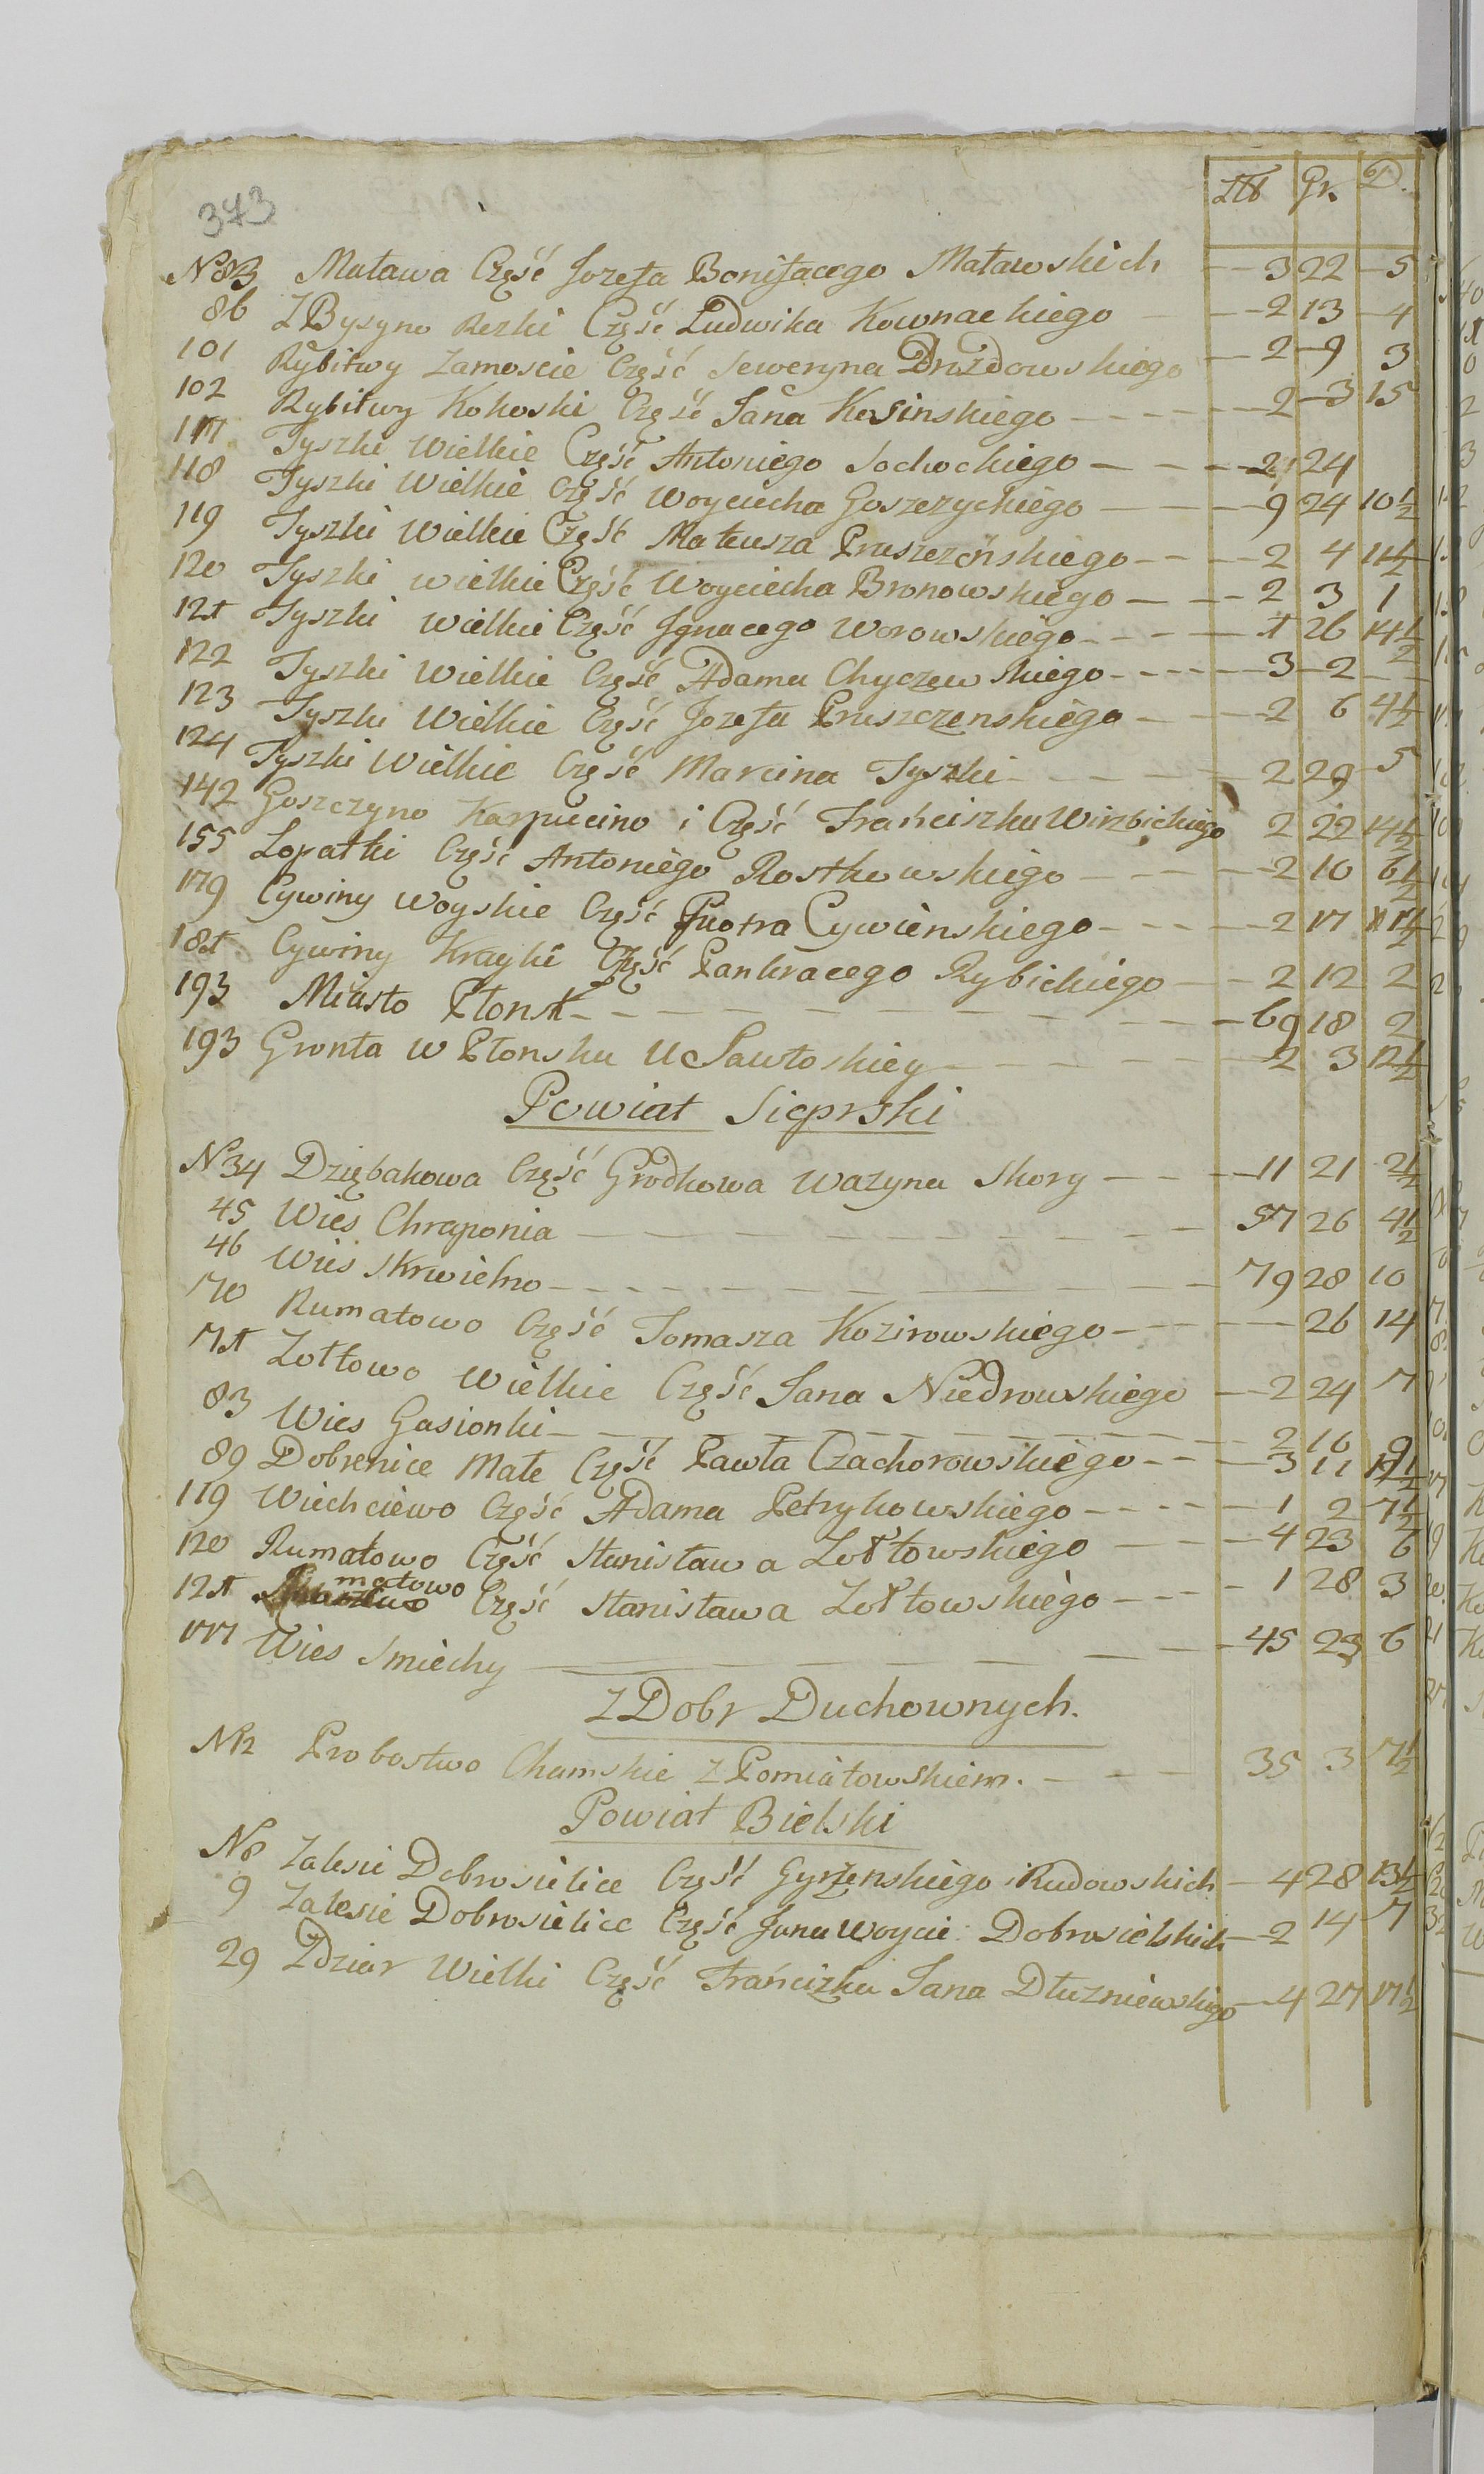 373
Złł Gr. D.
N 83 Matawa Część Jozefa Bonifacego Matawskich 3 22 5
86 Z Bysyno Rezki Część Ludwika Kownackiego 2 13 4
101 Rybitwy Zamoscie Część Seweryna Drozdowskiego 2 9 3
102 Rybitwy Kokoski Część Jana Kosinskiego 2 3 15
117 Tyszki Wielkie Część Antoniego Sochockiego 2 24
118 Tyszki Wielkie Część Woyciecha Goszczyckiego 9 24 10½
119 Tyszki Wielkie Część Mateusza Pruszczońskiego 2 4 11½
120 Tyszki Wielkie Część Woyciecha Bronowskiego 2 3 1
121 Tyszki Wielkie Część Jgnacego Worowskiego 1 26 14½
122 Tyszki Wielkie Część Adama Chyczewskiego 3 2
123 Tyszki Wielkie Część Jozefa Pruszczenskiego 2 6 4½
124 Tyszki Wielkie Część Marcina Tyszki 2 29 5
142 Goszczyno Karpucino i Część Franciszka Wirzbickiego 2 22 14½
155 Lopatki Część Antoniego Rostkowskiego 2 10 6½
179 Cywiny Woyskie Część Piotra Cywienskiego 2 17
181 Cywiny Krayki Część Pankracego Rybickiego 2 12 2
193 Miasto Płonsk 69 18 2
193 Gronta w Płonsku U Pawłoskiey 2 3 12½
Powiat Sieprski
N 34 Dziębakowa Część Grodkowa Wazyna Skory 11 21 2½
45 Wies Chraponia 57 26 4½
46 Wies Skrwielno 79 28 10
70 Rumatowo Część Tomasza Kozirowskiego 26 14
71 Zołtowo Wielkie Część Jana Niedrowskiego 2 24 7
83 Wies Gasionki 2 16 9
89 Dobrenice Małe Część Pawła Czachorowskiego 3 11
119 Wiechciewo Część Adama Petrykowskiego 1 2 7½
120 Rumatowo Część Stanisława Zołtowskiego 4 23 6
121 matowo Część Stanisława Zołtowskiego 1 28 3
177 Wies Smiechy 45 23 6
Z Dobr Duchownych.
N 12 Probostwo Chamskie z Pomiatowskiem. 35 3 7½
Powiat Bielski
N 8 Zalesie Dobrosielice Część Gyrżenskiego i Rudowskich 4 28 13½
9 Zalesie Dobrosielice Część Jana Woycie: Dobrosielskich 2 14 7
29 Zdziar Wielki Część Frańcizka Jana Dłużniewskigo 4 27 17½